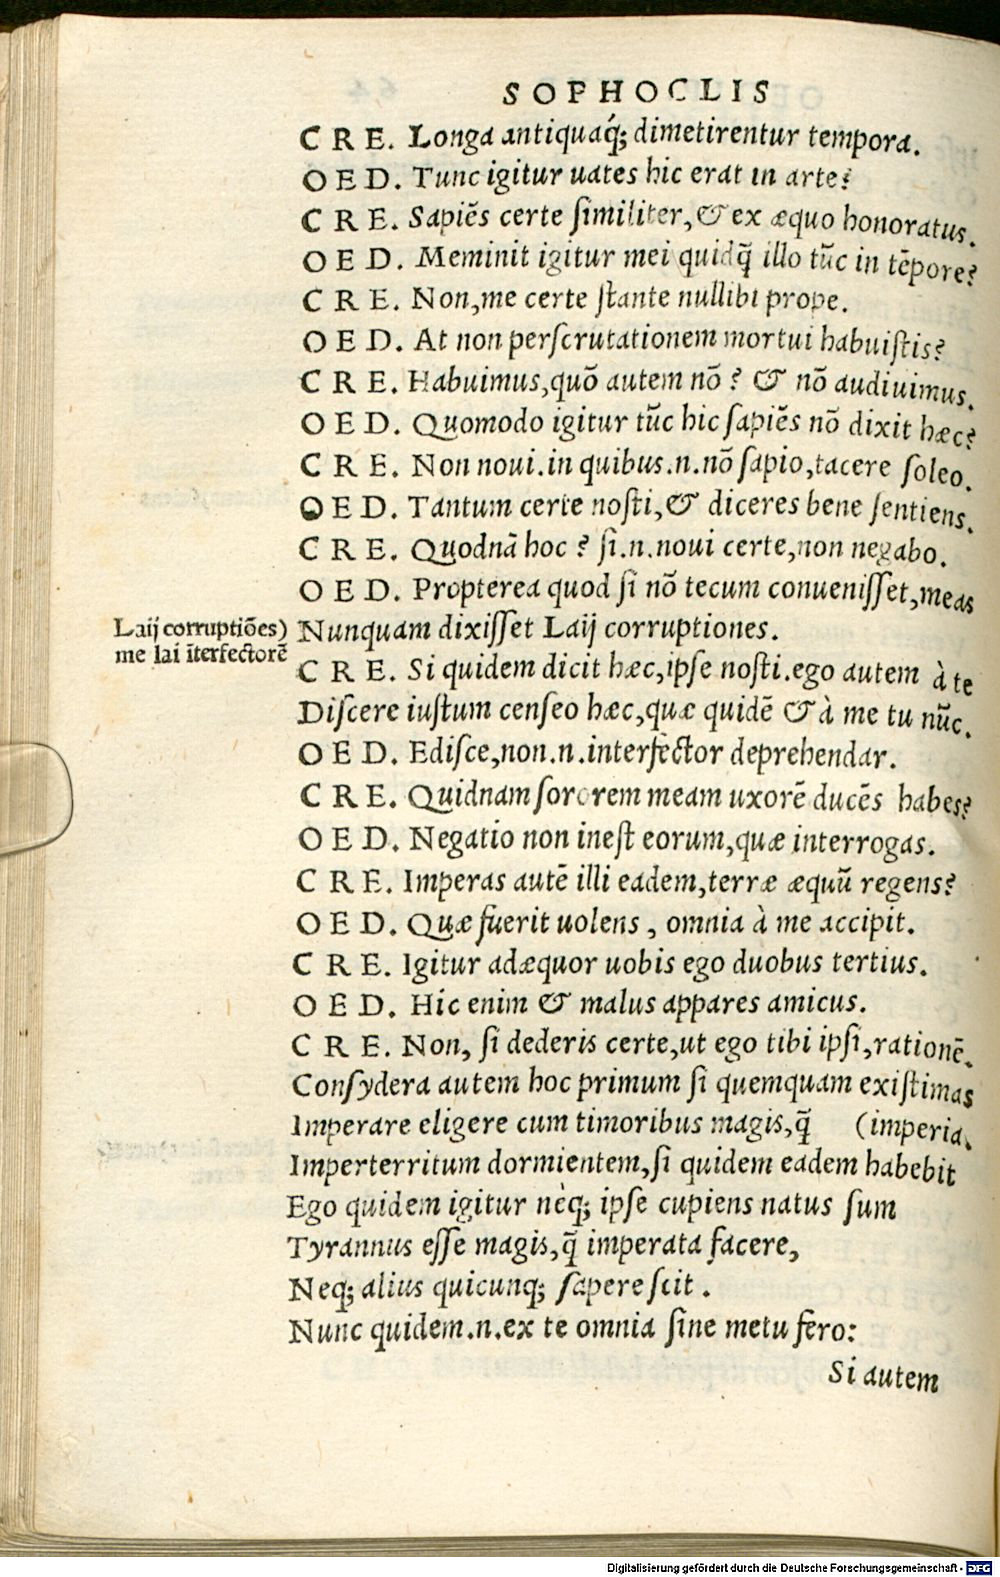 SOPHOCLIS
CRE. Longa antiquaq́; dimetirentur tempora.
OED. Tunc igitur uates hic erat in arte?
CRE. Sapiẽs certe ſimiliter, & ex æquo honoratus.
OED. Meminit igitur mei quidq̃ illo tũc in tẽpore?
CRE. Non, me certe ſtante nullibi prope.
OED. At non perſcrutationem mortui habuiſtis?
CRE. Habuimus, quõ autem nõ? & nõ audiuimus.
OED. Quomodo igitur tũc hic ſapiẽs nõ dixit hæc?
CRE. Non noui. in quibus .n. nõ ſapio, tacere ſoleo.
OED. Tantum certe noſti, & diceres bene ſentiens.
CRE. Quodnã hoc? ſi .n. noui certe, non negabo.
OED. Propterea quod ſi nõ tecum conueniſſet, meas
Laij corruptiões) Nunquam dixiſſet Laij corruptiones.
me lai ĩterfectorẽ
CRE. Si quidem dicit hæc, ipſe noſti. ego autem à te
Diſcere iuſtum cenſeo hæc, quæ quidẽ & à me tu nũc.
OED. Ediſce, non .n. interfector deprehendar.
CRE. Quidnam ſororem meam uxorẽ ducẽs habes?
OED. Negatio non ineſt eorum, quæ interrogas.
CRE. Imperas autẽ illi eadem, terræ æquũ regens?
OED. Quæ fuerit uolens, omnia à me accipit.
CRE. Igitur adæquor uobis ego duobus tertius.
OED. Hic enim & malus appares amicus.
CRE. Non, ſi dederis certe, ut ego tibi ipſi, rationẽ.
Conſydera autem hoc primum ſi quemquam exiſtimas
Imperare eligere cum timoribus magis, q̃ (imperia.
Imperterritum dormientem, ſi quidem eadem habebit
Ego quidem igitur nèq; ipſe cupiens natus ſum
Tyrannus eſſe magis, q̃ imperata facere,
Neq; alius quicunq; ſapere ſcit.
Nunc quidem .n. ex te omnia ſine metu fero:
Si autem
Digitalisierung gefördert durch die Deutsche Forschungsgemeinschaft - DFG